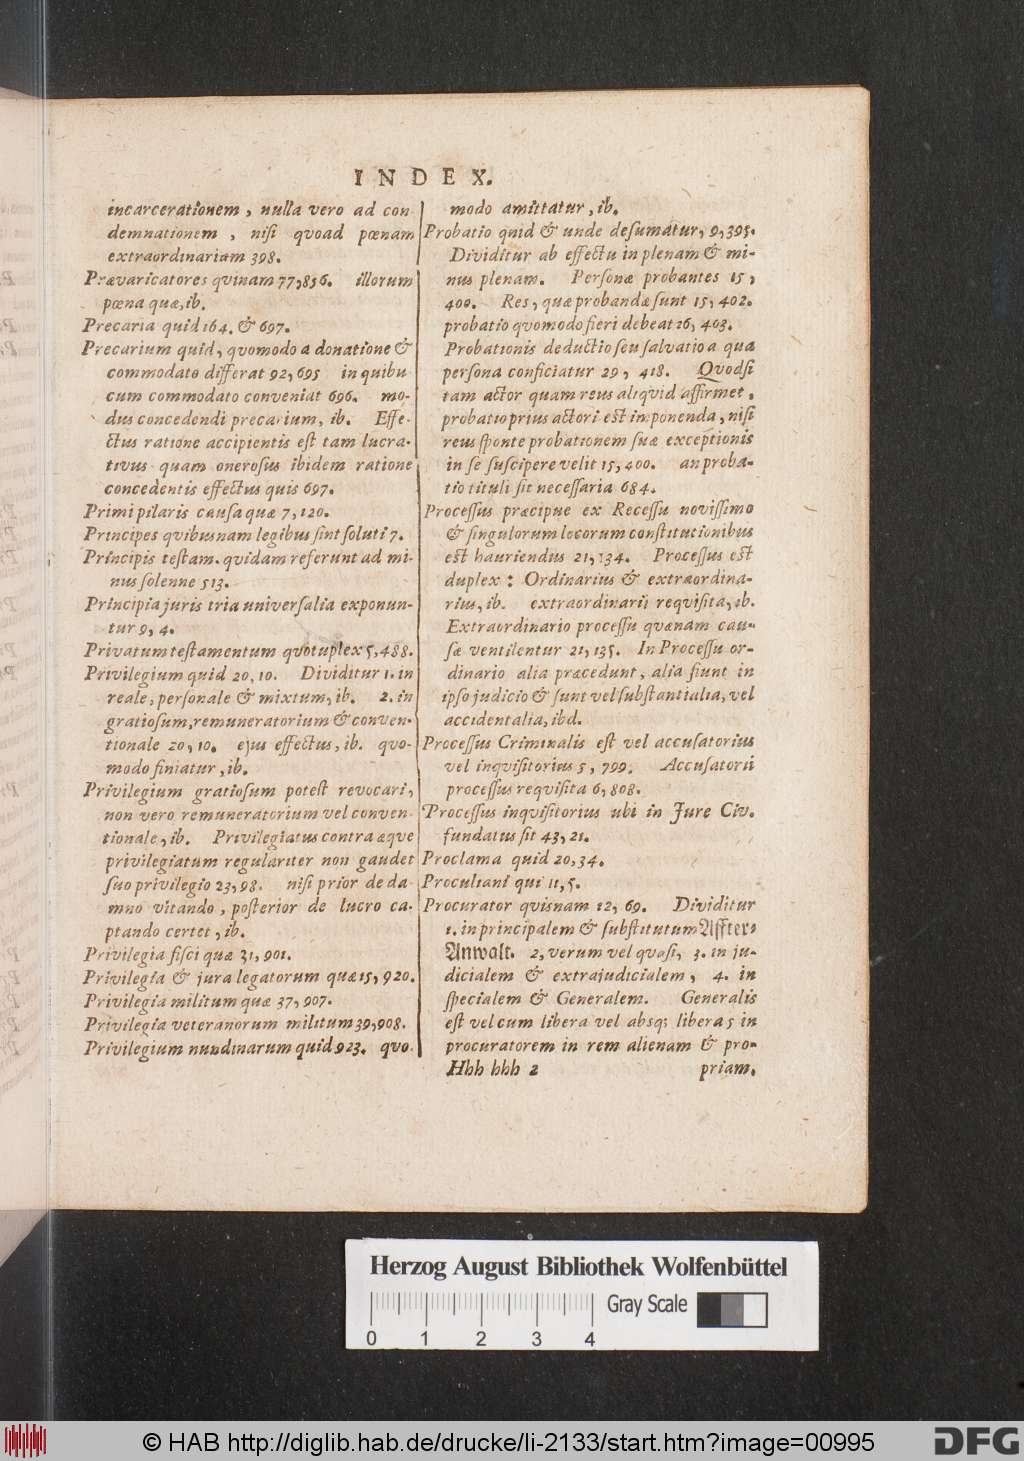 INDEX.
incarcerationem, nulla vero ad con
demnationem, nisi quoad pœnam
extraordinariam 398.
Prævaricatores quinam 77,856. illorum
pœna quæ, ib.
Precaria quid 164. & 697.
Precarium quid, quomodo a donatione &
commodato differat 92,695 in quibu
cum commodato conveniat 696. mo-
dus concedendi precarium, ib. Effe-
ctus ratione accipientis est tam lucra-
tivus quam onerosius ibidem ratione
concedentis effectus quis 697.
Primipilaris causa quæ 7,120.
Principes quibusnam legibus sint soluti 7.
Principis testam. quidam referunt ad mi-
nus solenne 513.
Principia juris tria universalia exponun-
tur 9,4.
Privatum testamentum quotuplex 5,488.
Privilegium quid 20,10. Dividitur 1. in
reale, personale & mixtum, ib. 2. in
gratiosum, remuneratorium & conven-
tionale 20,10. ejus effectus, ib. quo-
modo finiatur, ib.
Privilegium gratiosum potest revocari,
non vero remuneratorium vel conven-
tionale, ib. Privilegiatus contra æque
privilegiatum regulariter non gaudet
suo privilegio 23,98. nisi prior de da-
mno vitando, posterior de lucro ca-
ptando certet, ib.
Privilegia fisci quæ 31,901.
Privilegia & jura legatorum quæ 15,920.
Privilegia militum quæ 37,907.
Privilegia veteranorum militum 39,908.
Privilegium nundinarum quid 923. quo-
modo amittatur, ib.
Probatio quid & unde desumatur, 9,395.
Dividitur ab effectu in plenam & mi-
nus plenam. Personæ probantes 15,
400. Res, quæ probandæ sunt 15,402.
probatio quomodo fieri debeat 26,403.
Probationis deductio seu salvatio a qua
persona conficiatur 29, 418. Quodsi
tam actor quam reus aliquid affirmet,
probatio prius actori est imponenda, nisi
reus sponte probationem suæ exceptionis
in se suscipere velit 15,400. an proba-
tio tituli sit necessaria 684.
Processus præcipue ex Recessu novissimo
& singulorum locorum constitutionibus
est hauriendus 21,134. Processus est
duplex: Ordinarius & extraordina-
rius, ib. extraordinarii requisita, ib.
Extraordinario processu quænam cau-
sæ ventilentur 21,135. In Processu or-
dinario alia præcedunt, alia fiunt in
ipso judicio & sunt vel substantialia, vel
accidentalia, ibd.
Processus Criminalis est vel accusatorius
vel inquisitorius 5, 799. Accusatorii
processus requisita 6,808.
Processus inquisitorius ubi in Jure Civ.
fundatus sit 43,21.
Proclama quid 20,34.
Proculiani qui 11,5.
Procurator quisnam 12, 69. Dividitur
1. in principalem & substitutum Affter-
Anwalt. 2, verum vel quasi, 3. in ju-
dicialem & extrajudicialem, 4. in
specialem & Generalem. Generalis
est vel cum libera vel absq; libera 5 in
procuratorem in rem alienam & pro-
Hhh hhh 2 priam.
Herzog August Bibliothek Wolfenbüttel
Gray Scale
0 1 2 3 4
© HAB http://diglib.hab.de/drucke/li-2133/start.htm?image=00995
DFG